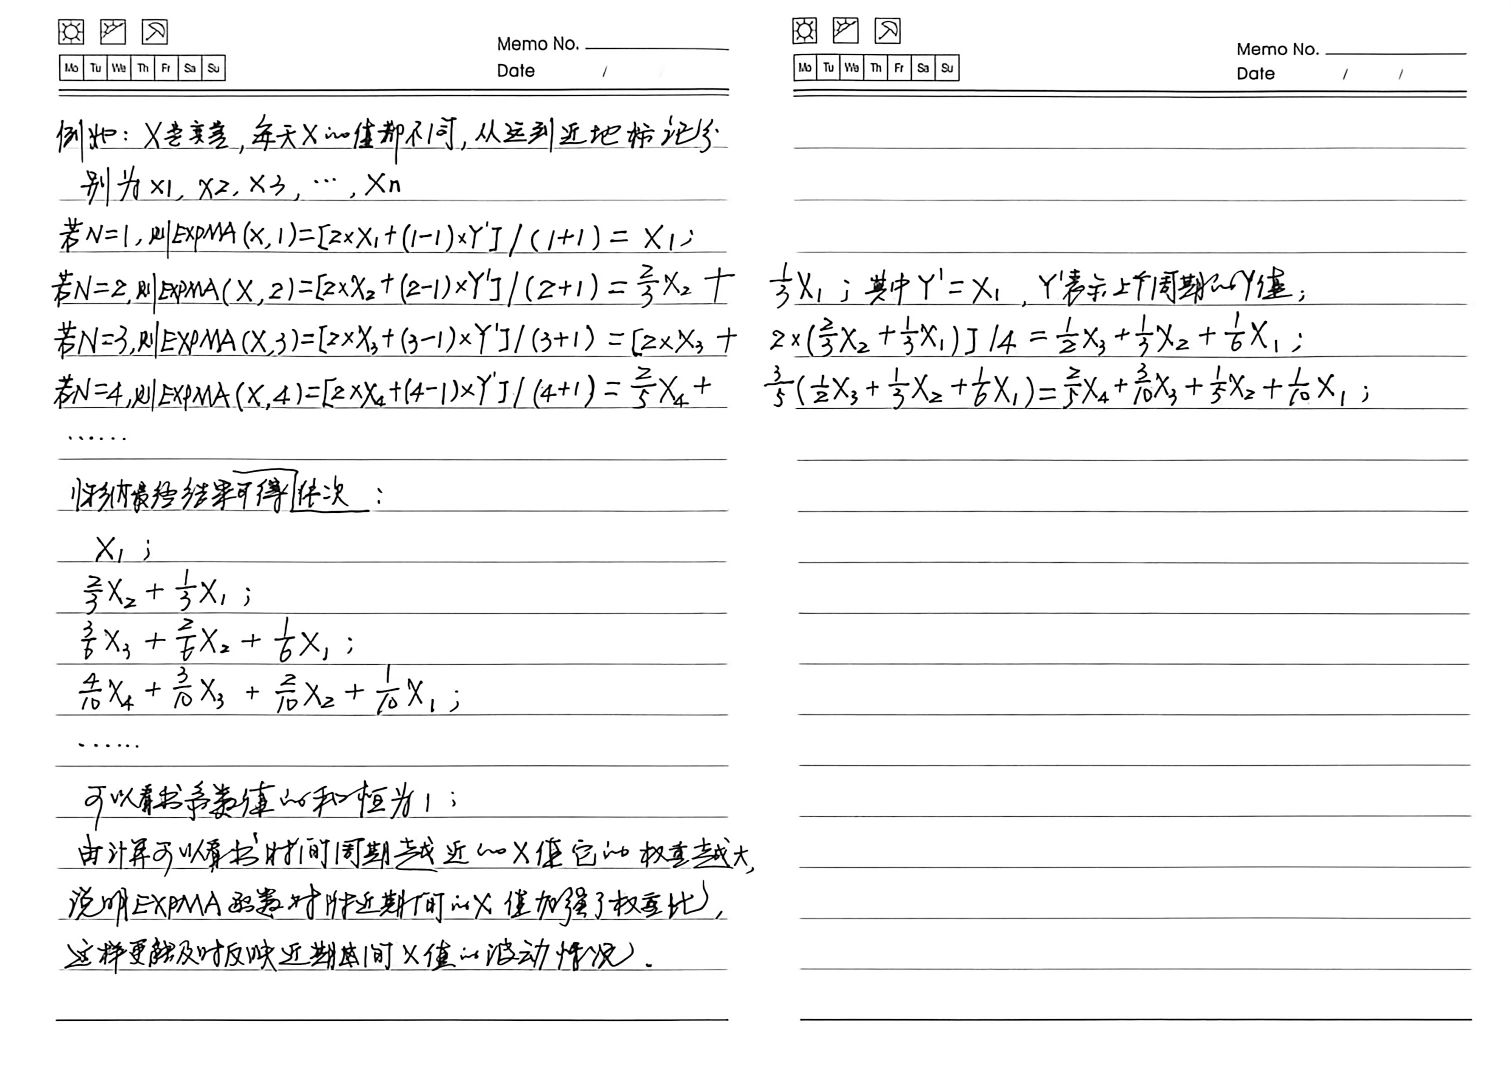 Memo No.
Mo Tu We Th Fr Sa Su
Date /
例如：X是变量，每天X的值都不同，从远到近地标记分
别为X1, X2, X3, …, Xn
若N=1,则EXPMA(X,1)=[2×X₁+(1-1)×Y']/(1+1)=X₁;
若N=2,则EXPMA(X,2)=[2×X₂+(2-1)×Y']/(2+1)=2/3X₂+
若N=3,则EXPMA(X,3)=[2×X₃+(3-1)×Y']/(3+1)=[2×X₃+
若N=4,则EXPMA(X,4)=[2×X₄+(4-1)×Y']/(4+1)=2/5X₄+
……
归纳最终结果可得依次：
X₁;
2/3X₂+1/3X₁;
3/6X₃+2/6X₂+1/6X₁;
4/10X₄+3/10X₃+2/10X₂+1/10X₁;
……
可以看出系数值的和恒为1;
由计算可以看出时间周期越近的X值它的权重越大,
说明EXPMA函数对附近期间的X值加强了权重比,
这样更能及时反映近期期间X值的波动情况.
Memo No.
Mo Tu We Th Fr Sa Su
Date / /
1/3X₁;其中Y'=X₁,Y'表示上个周期的Y值;
2×(2/3X₂+1/3X₁)]/4=1/2X₃+1/3X₂+1/6X₁;
3/5(1/2X₃+1/3X₂+1/6X₁)=2/5X₄+3/10X₃+1/5X₂+1/10X₁;